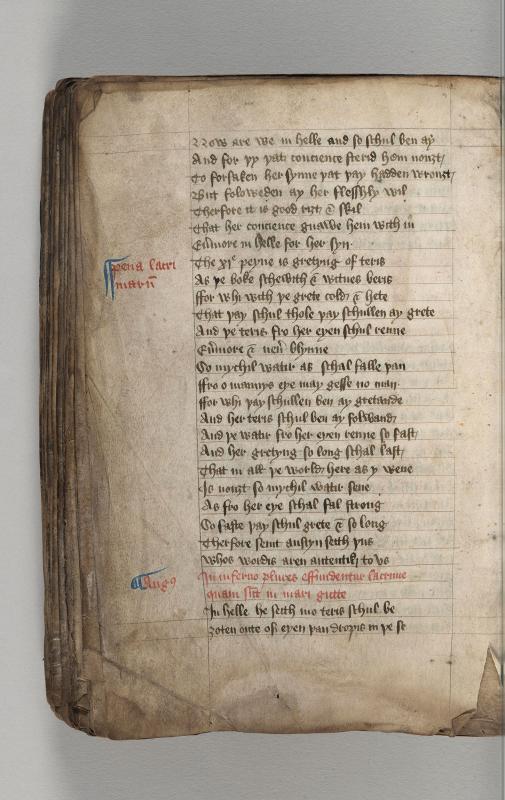 Now are we in helle and so schul ben ay
And for yy yat concience sterid hem nouȝt
To forsaken her synne yat yay hadden wrouȝt
But foloweden ay her flesshly wil
Therfore it is good riȝt & skil
That her concience gnawe hem with in
Eumore in helle for her syn
The xi peyne is gretyng of teris
¶ pena lacri
marū
As ye boke schewith & witnes beris
ffor whi with ye grete cold & hete
That yay schul thole yay schullen ay grete
And ye teris fro her eyen schul renne
Eumore & neu blynne
So mychil watir as schal falle yan
ffro o mannys eye may gesse no man
ffor whi yay schullen ben ay gretande
And her teris schul ben ay folwand
And ye watir fro her eyen renne so fast
And her gretyng so long schal last
That in all ye world here as y wene
Is nouȝt so mychil watir sene
As fro her eye schal fal strong
So faste yay schul grete & so long
Therfore seint austyn seith yus
Whos wordis aren autentik to vs
¶ Aug9
In inferno plures effundentur lacrime
quam sint in mari gutte
In helle he seith mo teris schul be
ȝoten oute of eyen yan dropis in ye se